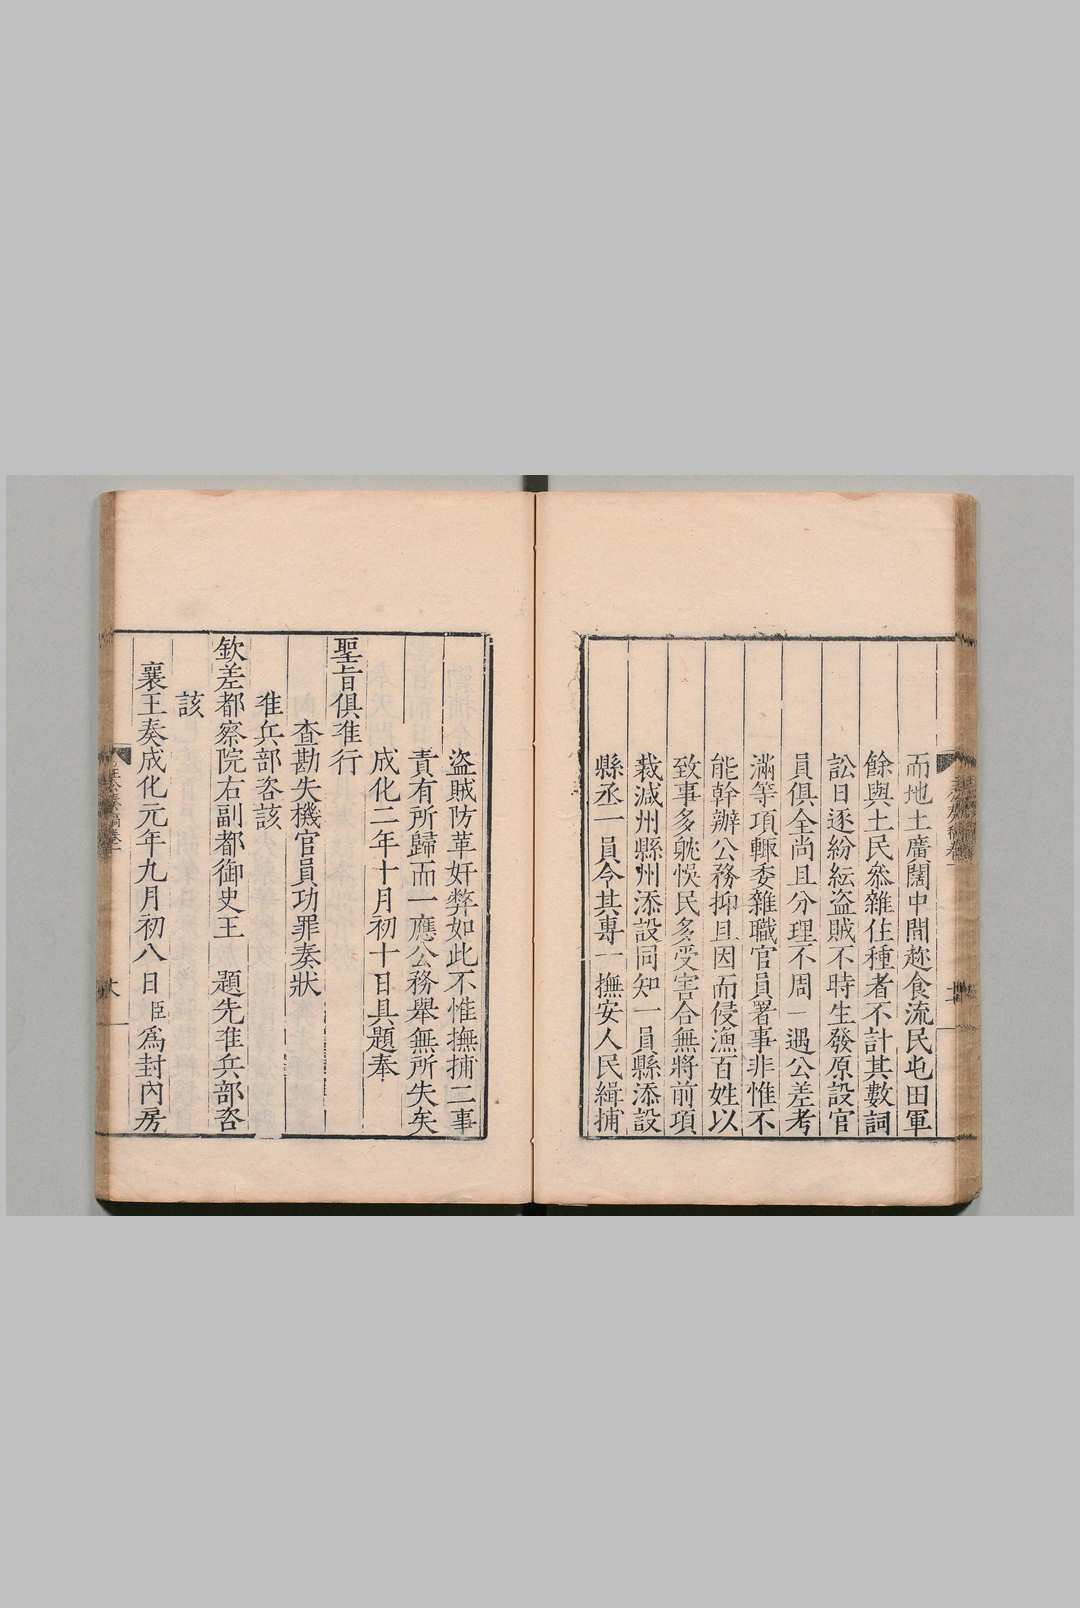 而地土廣闊中間趂食流民屯田軍
餘與土民叅雜住種者不計其數詞
訟日逐紛紜盜賊不時生發原設官
員俱全尚且分理不周一遇公差考
滿等項輙委雜職官員署事非惟不
能幹辦公務抑且因而侵漁百姓以
致事多躭悞民多受害合無將前項
裁減州縣州添設同知一員縣添設
縣丞一員令其專一撫安人民緝捕
盜賊防革奸弊如此不惟撫捕二事
責有所歸而一應公務舉無所失矣
成化二年十月初十日具題奉
聖旨俱准行
查勘失機官員功罪奏狀
准兵部咨該
欽差都察院右副都御史王 題先准兵部咨
該
襄王奏成化元年九月初八日臣爲封內房